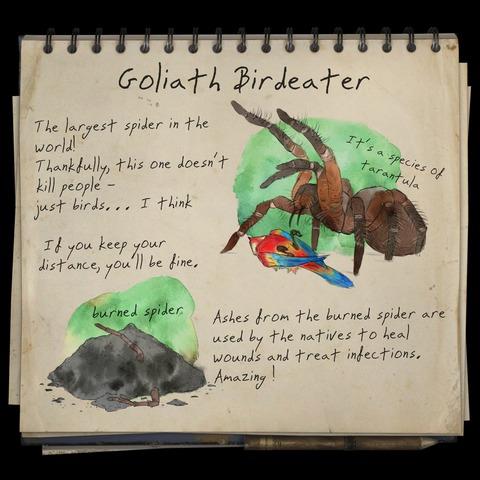 Goliath Birdeater
The largest spider in the
world!
Thankfully, this one doesn't
kill people –
just birds... I think
It's a species of
tarantula
If you keep your
distance, you'll be fine.
burned spider
Ashes from the burned spider are
used by the natives to heal
wounds and treat infections.
Amazing!